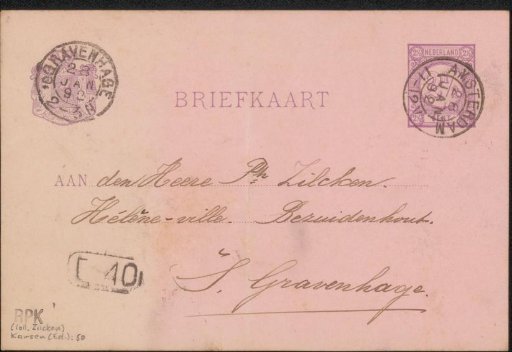 'SGRAVENHAGE
28
JAN
NEDERLAND
AMSTERDAM
BRIEFKAART
AAN den Heere Ph Zilcken.
Hélène-ville. Bezuidenhout.
's Gravenhage.
RPK
(coll. Zilcken)
Karsen (Ed.): 50